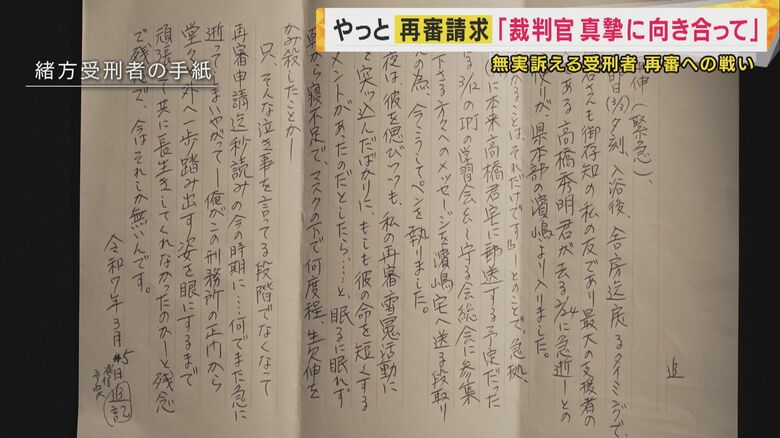 やっと 再審請求 「裁判官 真摯に向き合って」
無実訴える受刑者 再審への戦い
緒方受刑者の手紙
追
伸(緊急)、
夕刻、入浴後、舎房迄戻るタイミングで、
さんも御存知の私の友であり最大の支援者の
ある高橋秀明君が去る2/24に急逝ーとの
りが、県本部の濱嶋より入りました。
ることは、それだけです」ーとのことで、急拠、
に本来高橋君宅に郵送する予定だった
る3/12のIPJの学習会と、守る会総会に参集
下さる方々へのメッセージを濱嶋宅へ送る段取り
の為、今こうしてペンを執りました。
夜は、彼を偲びつつも、私の再審雪冤活動に
を突っ込んだばかりに、もしも彼の命を短くする
メントがあったのだとしたら…と、眠るに眠れず
朝から寝不足で、マスクの下で何度程、生欠伸を
かみ殺したことかー
只、そんな泣き事を言ってる段階でなくなて
再審申請迄秒読みの今の時期に…何でまた急に
逝ってしまいやがってー俺がこの刑務所の正門から
堂々外へ一歩踏み出す姿を眼にするまで
頑張って共に長生きしてくれなかったのかーと残念
で残念で、今はそれしか無いんです。
令和7年3月5日追記